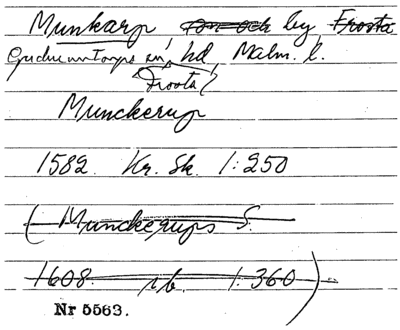 Munkarp, ~~son och~~ by ~~Frosta~~
Gudmuntorps sn, hd, Malm. l.
Frosta
Munckerup
1582. Kr. Sk. 1:250
(~~Munckerups S.~~
~~1608. rb. 1:360~~).
Nr 5563.